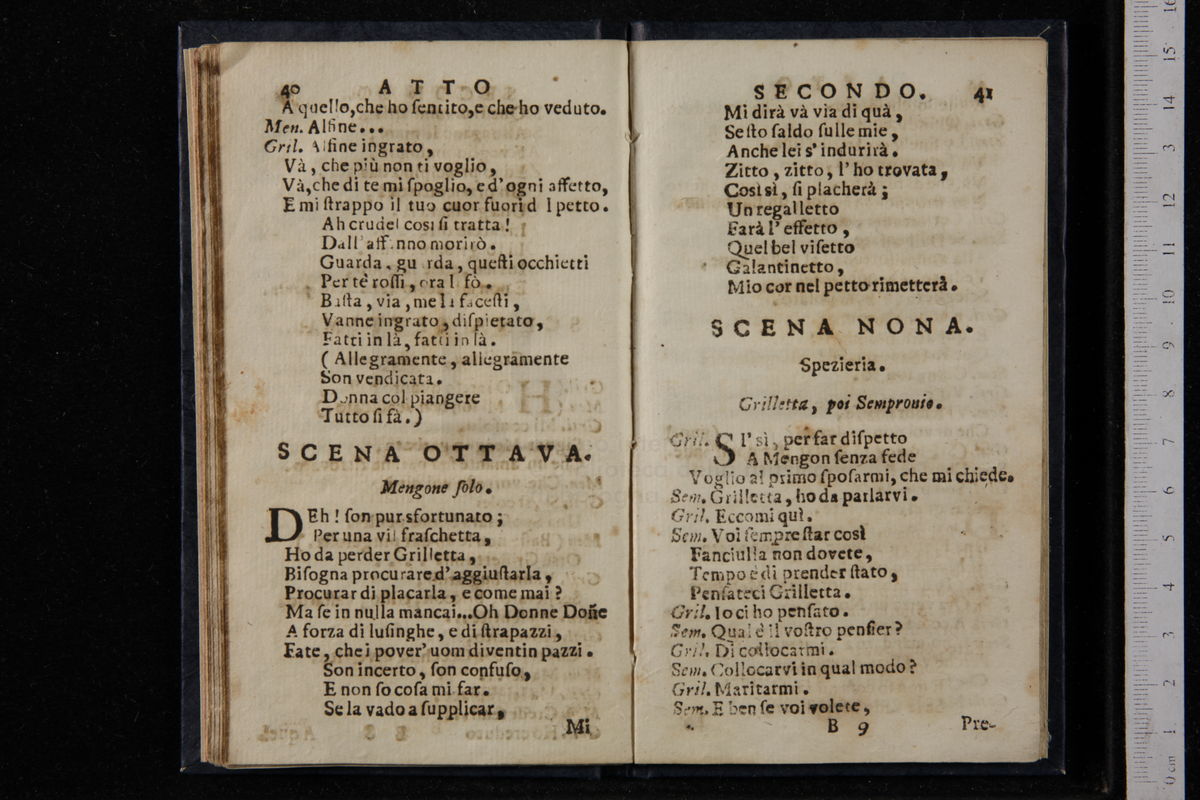 40 ATTO
A quello, che ho ſentito, e che ho veduto.
Men. Alfine...
Gril. Alfine ingrato,
Và, che più non ti voglio,
Và, che di te mi ſpoglio, e d'ogni affetto,
E mi ſtrappo il tuo cuor fuori d l petto.
Ah crudel così ſi tratta!
Dall' aff nno morirò.
Guarda, gu rda, queſti occhietti
Per tè roſſi, ora l fò.
Baſta, via, me la faceſti,
Vanne ingrato, diſpietato,
Fatti in là, fatti in là.
( Allegramente, allegramente
Son vendicata.
Donna col piangere
Tutto ſi fà. )
SCENA OTTAVA.
Mengone ſolo.
DEh! ſon pur sfortunato;
Per una vil fraſchetta,
Ho da perder Grilletta,
Biſogna procurare d'aggiuſtarla,
Procurar di placarla, e come mai?
Ma ſe in nulla mancai...Oh Donne Doñe
A forza di luſinghe, e di ſtrapazzi,
Fate, che i pover' uom diventin pazzi.
Son incerto, ſon confuſo,
E non ſo coſa mi far.
Se la vado a ſupplicar,
Mi
SECONDO. 41
Mi dirà và via di quà,
Se ſto ſaldo ſulle mie,
Anche lei s' indurirà.
Zitto, zitto, l' ho trovata,
Così sì, ſi placherà;
Un regalletto
Farà l' effetto,
Quel bel viſetto
Galantinetto,
Mio cor nel petto rimetterà.
SCENA NONA.
Spezieria.
Grilletta, poi Sempronio.
Gril. SI' sì, per far diſpetto
A Mengon ſenza fede
Voglio al primo ſpoſarmi, che mi chiede.
Sem. Grilletta, ho da parlarvi.
Gril. Eccomi quì.
Sem. Voi ſempre ſtar così
Fanciulla non dovete,
Tempo è di prender ſtato,
Penſateci Grilletta.
Gril. Io ci ho penſato.
Sem. Qual è il voſtro penſier?
Gril. Di collocarmi.
Sem. Collocarvi in qual modo?
Gril. Maritarmi.
Sem. E ben ſe voi volete,
B 9 Pre-